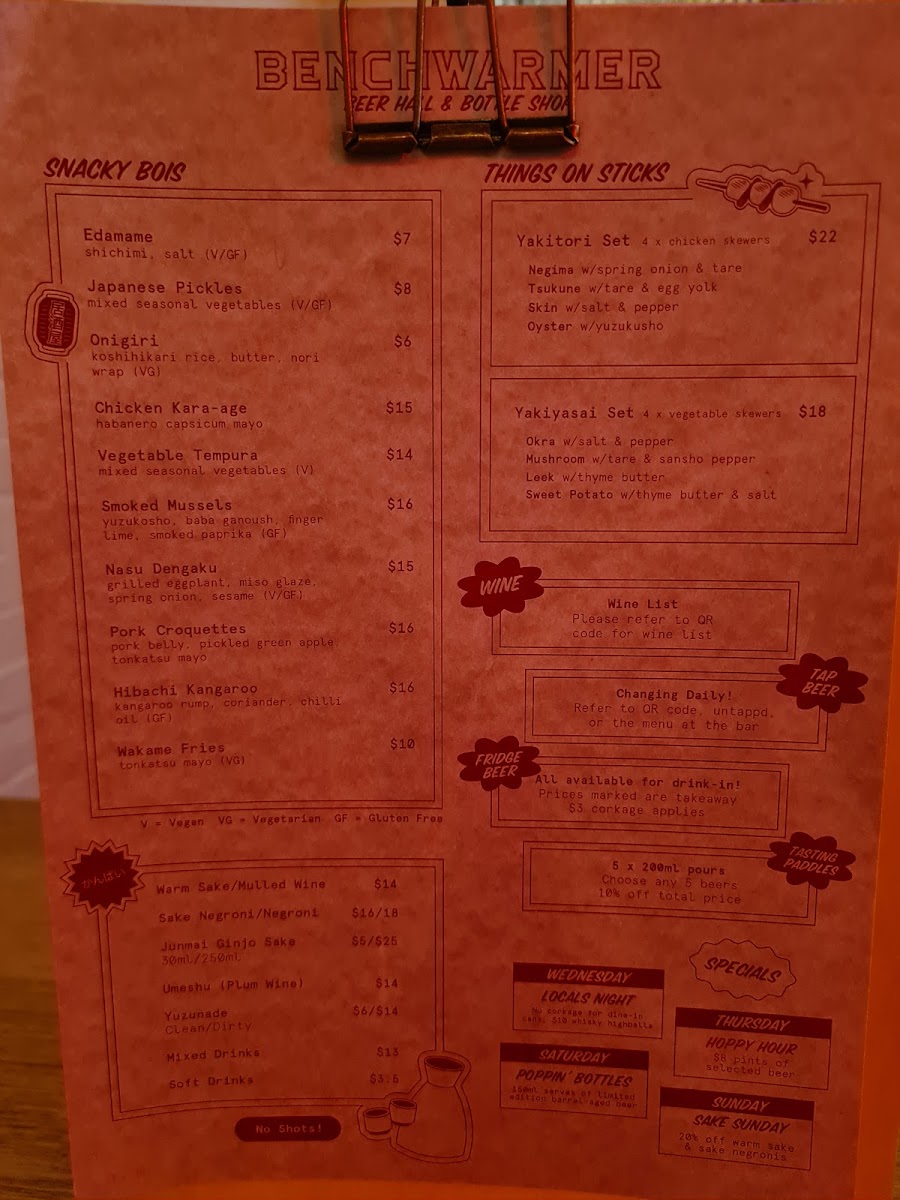 BENCHWARMER
BEER HALL & BOTTLE SHOP
SNACKY BOIS
Edamame $7
shichimi, salt (V/GF)
Japanese Pickles $8
mixed seasonal vegetables (V/GF)
Onigiri $6
koshihikari rice, butter, nori
wrap (VG)
Chicken Kara-age $15
habanero capsicum mayo
Vegetable Tempura $14
mixed seasonal vegetables (V)
Smoked Mussels $16
yuzukosho, baba ganoush, finger
lime, smoked paprika (GF)
Nasu Dengaku $15
grilled eggplant, miso glaze,
spring onion, sesame (V/GF)
Pork Croquettes $16
pork belly, pickled green apple
tonkatsu mayo
Hibachi Kangaroo $16
kangaroo rump, coriander, chilli
oil (GF)
Wakame Fries $10
tonkatsu mayo (VG)
V = Vegan VG = Vegetarian GF = Gluten Free
かんぱい
Warm Sake/Mulled Wine $14
Sake Negroni/Negroni $16/18
Junmai Ginjo Sake $5/$25
30ml/250ml
Umeshu (Plum Wine) $14
Yuzunade $6/$14
Clean/Dirty
Mixed Drinks $13
Soft Drinks $3.5
No Shots!
THINGS ON STICKS
Yakitori Set 4 x chicken skewers $22
Negima w/spring onion & tare
Tsukune w/tare & egg yolk
Skin w/salt & pepper
Oyster w/yuzukusho
Yakiyasai Set 4 x vegetable skewers $18
Okra w/salt & pepper
Mushroom w/tare & sansho pepper
Leek w/thyme butter
Sweet Potato w/thyme butter & salt
WINE
Wine List
Please refer to QR
code for wine list
TAP
BEER
Changing Daily!
Refer to QR code, untappd,
or the menu at the bar
FRIDGE
BEER
All available for drink-in!
Prices marked are takeaway
$3 corkage applies
TASTING
PADDLES
5 x 200ml pours
Choose any 5 beers
10% off total price
SPECIALS
WEDNESDAY
LOCALS NIGHT
No corkage for dine-in
cans, $10 whisky highballs
THURSDAY
HOPPY HOUR
$8 pints of
selected beer
SATURDAY
POPPIN' BOTTLES
150ml serves of limited
edition barrel-aged beer
SUNDAY
SAKE SUNDAY
20% off warm sake
& sake negronis